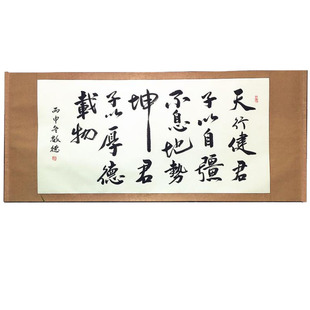 天行健君
子以自彊
不息地勢
坤君
子以厚德
載物
丙申